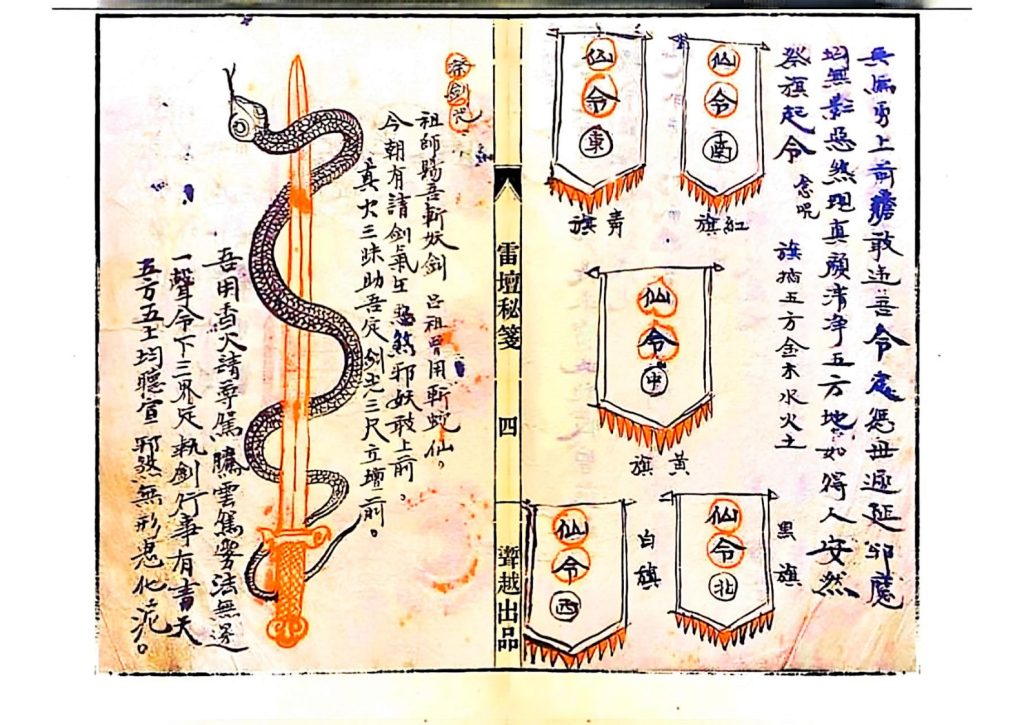 兵馬勇上前誰敢違善令處您毋遲延邪魔
均無影惡煞現真顏清净五方地如得人安然
祭旗起令 念咒
旗插五方金木水火土
仙令南
紅旗
仙令東
青旗
仙令中
黃旗
仙令北
黑旗
仙令西
白旗
雷壇秘箋 四 聳越出品
祭劍咒
祖師賜吾斬妖劍 呂祖曾用斬蛇仙。
今朝有請劍氣生 惡煞邪妖敢上前。
真火三昧助吾定 劍光三尺立壇前。
吾用香火請尊駕 騰雲駕雾法無邊
一聲令下三界定 執劍行事有青天
五方五土均聽宣 邪煞無形惡化泥。